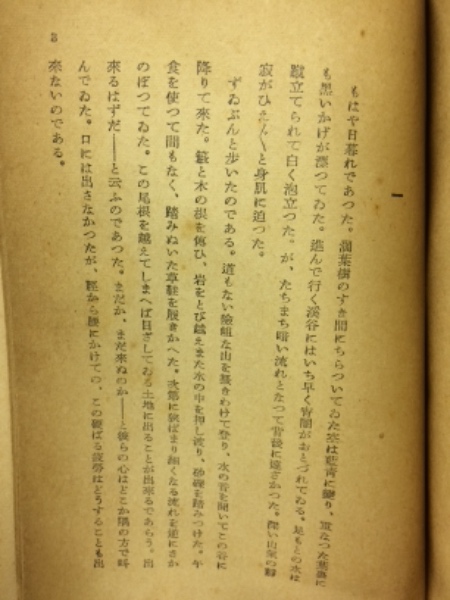 もはや日暮れであつた。濶葉樹のすき間にちらついてゐた空は藍青に變り、重なつた葉裏に
も黒いかげが漂つてゐた。進んで行く溪谷にはいち早く宵闇がおとづれてゐる。足もとの水は
蹴立てられて白く泡立つた。が、たちまち暗い流れとなつて背後に遠ざかつた。深い山氣の靜
寂がひえ〴〵と身肌に迫つた。
ずゐぶんと歩いたのである。道もない險岨な山を掻きわけて登り、水の音を聞いてこの谷に
降りて來た。藪と木の根を傳ひ、岩をとび越えまた水の中を押し渡り、砂礫を踏みつけた。午
食を使つて間もなく、踏みぬいた草鞋を履きかへた。次第に狹ばまり細くなる流れを逆にさか
のぼつてゐた。この尾根を越えてしまへば目ざしてゐる土地に出ることが出來るであらう。出
來るはずだ――と云ふのであつた。まだか、まだ來ぬのか――と彼らの心はどこか隅の方で呼
んでゐた。口には出さなかつたが、脛から腰にかけての、この硬ばる疲勞はどうすることも出
來ないのである。
3